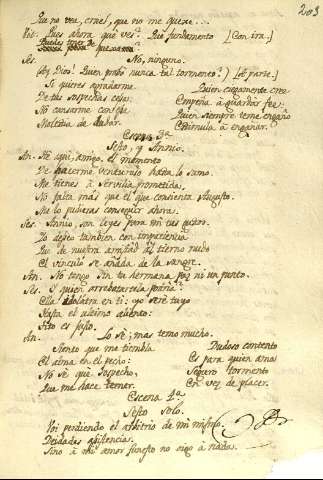 203
Que no ves, cruel, que no me quiere...
Vit. Pues ahora que ves? Que fundamento [Con ira.]
Puedes tener de quexarte?
Ses. No, ninguno.
(Ay Dios! Quien probó nunca tal tormento?) [á parte.]
Si quieres agradarme
De tus sospechas cesa:
No cansarme con ese
Molesto de dudar.
Quien ciegamente cree
Empeña á guardar fee;
Quien siempre teme engaño
Estimula á engañar.
Escena 3ª
Sesto, y Annio.
An. He aqui, amigo, el momento
De hacerme venturoso hasta lo sumo.
Me tienes á Servilia prometida.
No falta más que el que consienta Augusto.
Me lo pudieras conseguir ahora.
Ses. Annio, son leyes para mi tus gustos.
Yo deseo tambien con impaciencia
Que de nuestra amistad al tierno nudo
El vinculo se añada de la sangre.
An. No tengo sin tu hermana paz ni un punto.
Ses. Y quien arrebatartela podria?
Ella idolatra en ti: yo seré tuyo
Hasta el ultimo aliento:
Tito es justo.
An. Lo sé; mas temo mucho.
Siento que me tiembla
El alma en el pecho:
No sé qué sospecho,
Que me hace temer.
Dudoso contento
Es para quien ama
Seguro tormento
En vez de placer.
Escena 4ª
Sesto solo.
Voi perdiendo el arbitrio de mi mismo.
Deidades asistencias.
Sino á mi amor funesto no oigo á nada.